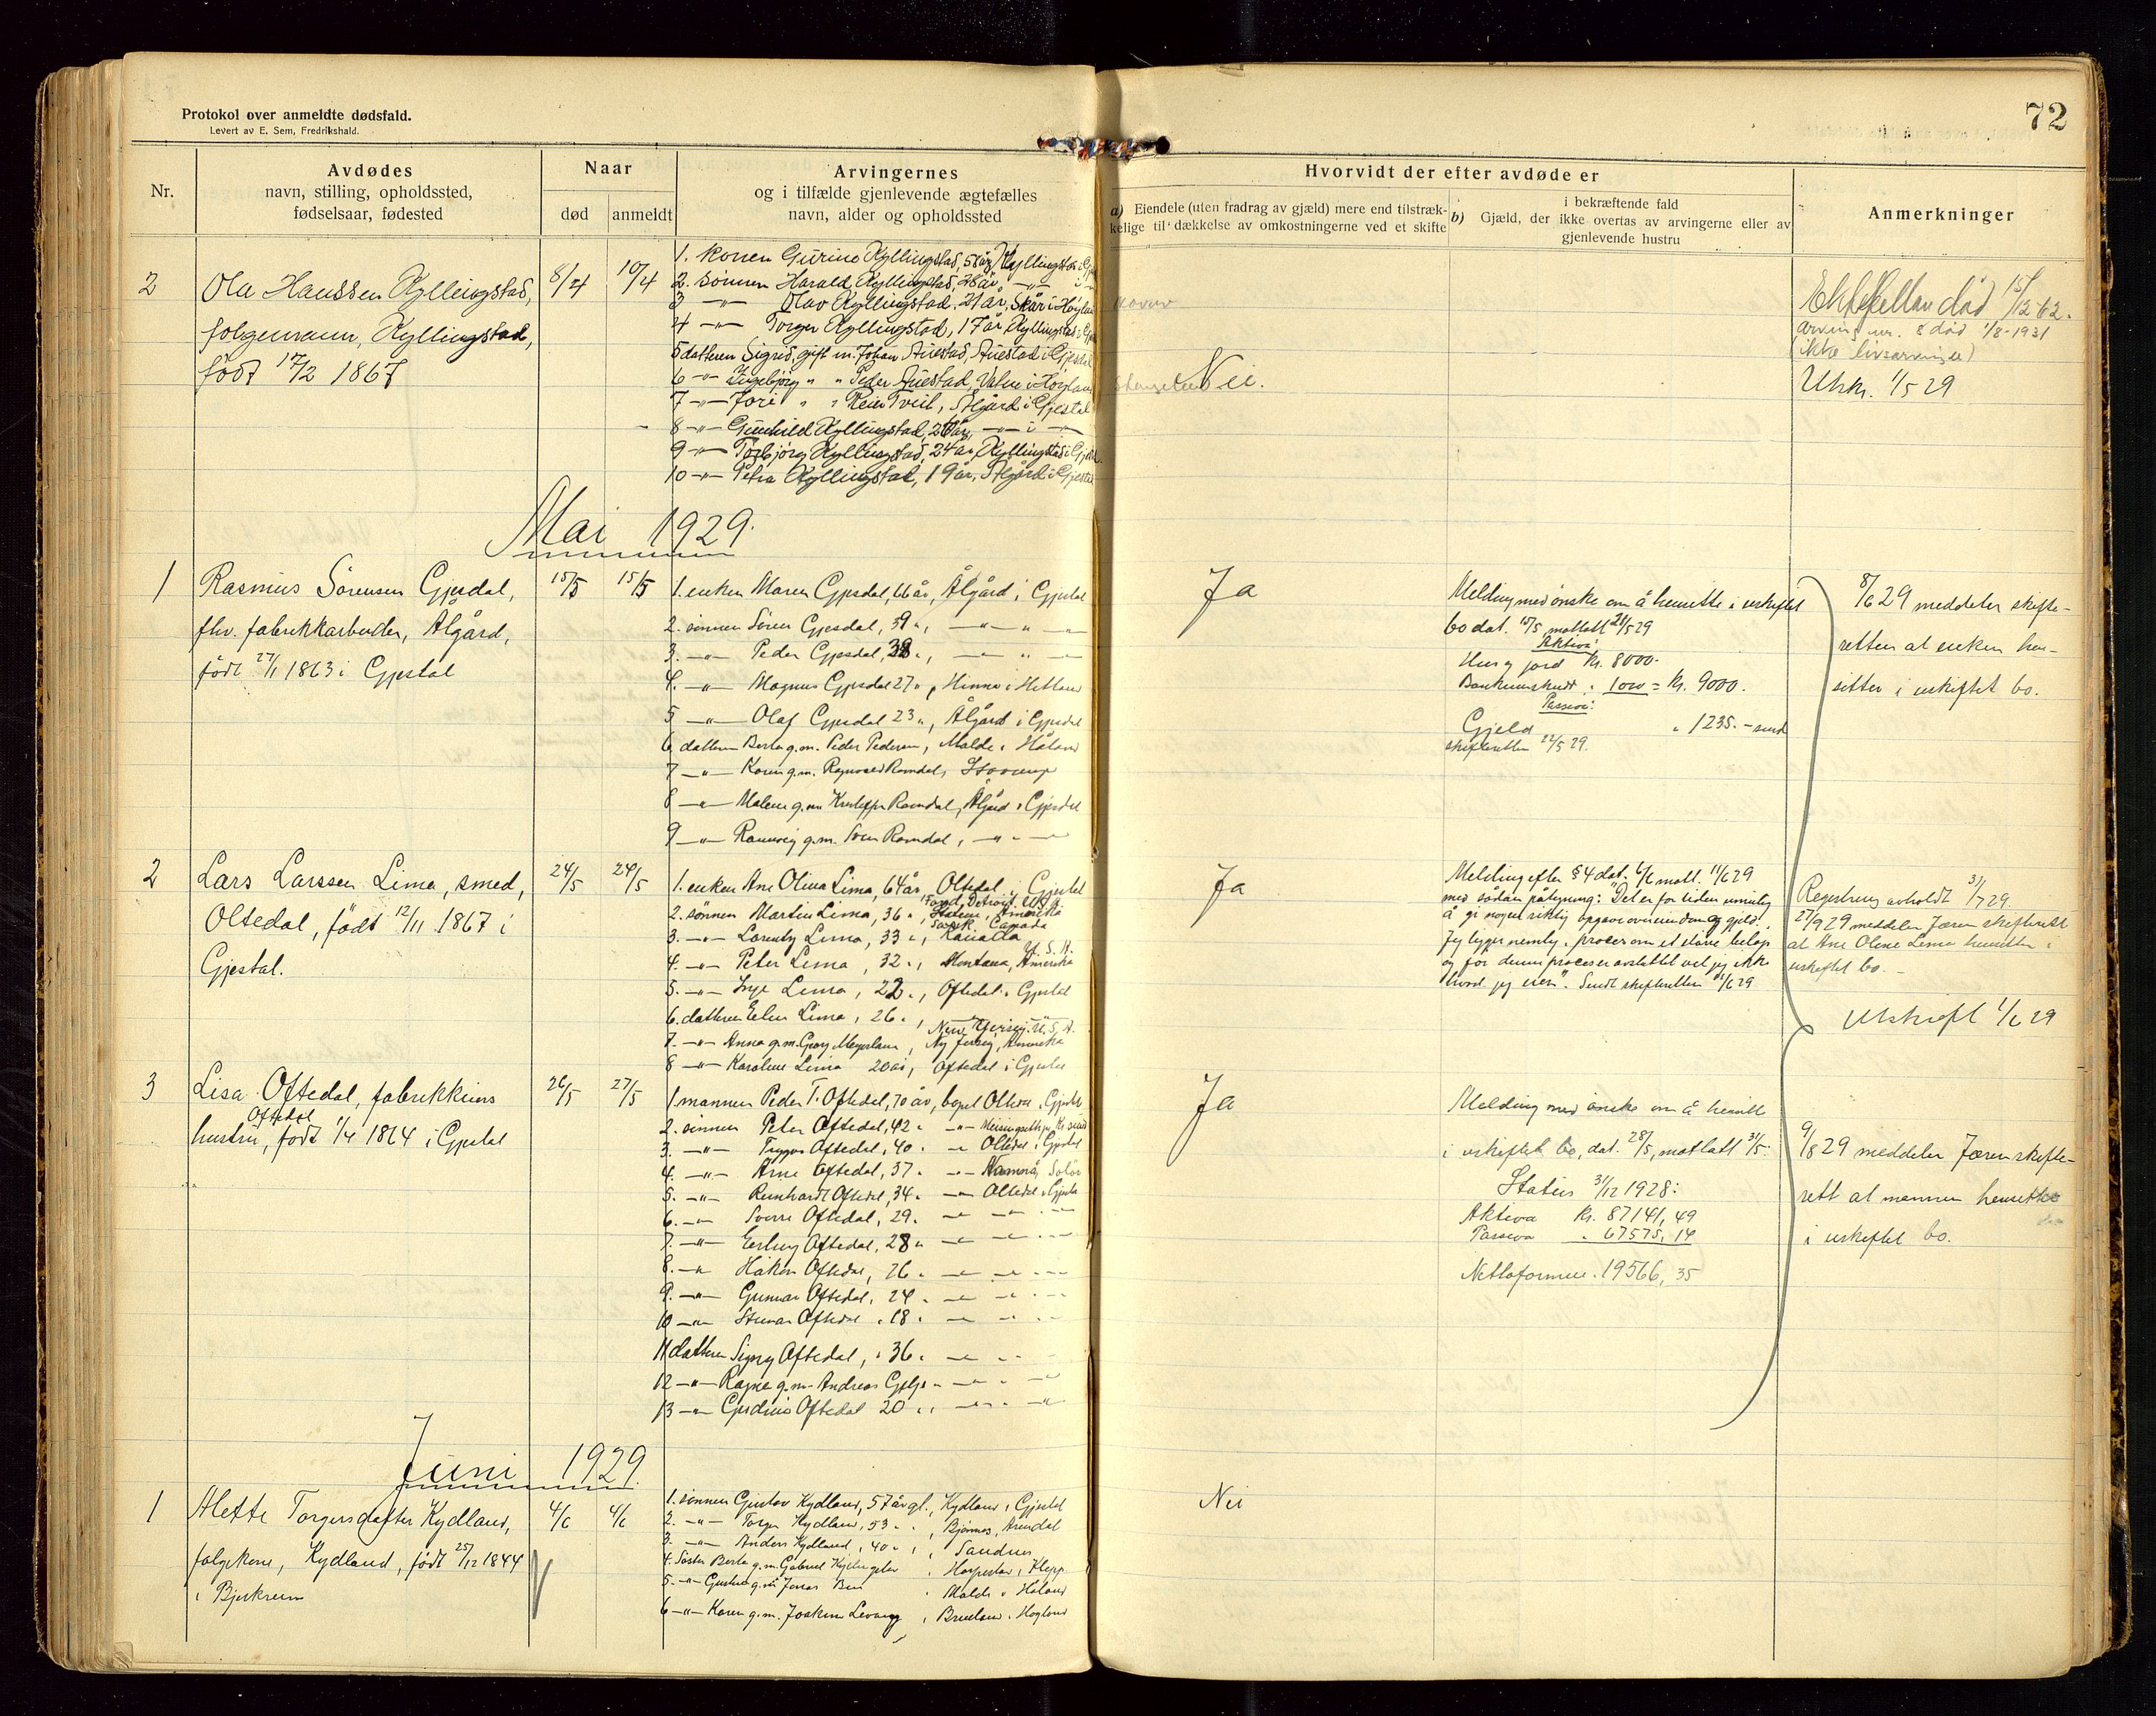 72
Protokol over anmeldte dødsfald.
Levert av E. Sem, Fredrikshald.
Nr.
Avdødes
navn, stilling, opholdssted,
fødselsaar, fødested
Naar
død
anmeldt
Arvingernes
og i tilfælde gjenlevende ægtefælles
navn, alder og opholdssted
Hvorvidt der efter avdøde er
a) Eiendele (uten fradrag av gjæld) mere end tilstræk-
kelige til dækkelse av omkostningerne ved et skifte
i bekræftende fald
b) Gjæld, der ikke overtas av arvingerne eller av
gjenlevende hustru
Anmerkninger
2
Ola Hanssen Kyllingstad,
folgemann, Kyllingstad,
født 17/2 1867
8/4
10/4
1. konen Gurine Kyllingstad, 58 år, Kyllingstad i
2. sønnen Harald Kyllingstad, 28 år, -"-
3 -"- Olav Kyllingstad, 21 år, Skår i Høyland
4 -"- Torger Kyllingstad, 17 år, Kyllingstad i
5 datteren Sigrid, gift m. Johan Auestad, Auestad i Gjesdal
6 -"- Ingebjørg " " Peder Auestad, Vatne i Høyland
7 -"- Tori " " Reier Tveit, Ålgård i Gjestal
8 -"- Gunhild Kyllingstad, 26 år, -"- i -"-
9 -"- Torbjørg Kyllingstad, 24 år, Kyllingstad i
10 -"- Petra Kyllingstad, 19 år, Ålgård i Gjestal
Nei.
Ektefellen død 15/12-62.
arving nr. 8 død 1/8-1931
(ikke livsarvinger)
Utskr. 1/5 29
Mai 1929.
1
Rasmus Sørensen Gjesdal,
fhv. fabrikkarbeider, Ålgård,
født 27/1 1863 i Gjestal
15/5
15/5
1. enken Maren Gjesdal, 66 år, Ålgård i Gjestal
2. sønnen Søren Gjesdal, 39 ", -"- " -"-
3. -"- Peder Gjesdal, 38 ", -"- " -"-
4. -"- Magnus Gjesdal 27 ", Hinna i Hetland
5 -"- Olaf Gjesdal 23 ", Ålgård i Gjesdal
6 datteren Berta g.m. Peder Pedersen, Malde i Håland
7 -"- Karen g.m. Ragnvald Ramdal,
8 -"- Malene g.m. Kristoffer Ramdal, Ålgård i Gjesdal
9 -"- Rannveig g.m. Sven Ramdal, -"- " -"-
Ja
Melding med ønske om å hensitte i uskiftet
bo dat. 15/5 mottatt 21/5 29
Aktiva
Hus og jord Kr. 8000.
Bankinnskudt " 1000 = Kr. 9000.
Passiva:
Gjeld " 1235. - sendt
skifteretten 22/5 29.
8/6 29 meddeler skifte-
retten at enken hen-
sitter i uskiftet bo.
2
Lars Larssen Lima, smed,
Oltedal, født 12/11 1867 i
Gjestal.
24/5
24/5
1. enken Ane Olina Lima, 64 år, Oltedal i Gjestal
Ford, Detroit, USA
2. sønnen Martin Lima, 36 ", Amerika
Canada
3. -"- Lorentz Lima, 33 ", Kanada
U.S.A.
4. -"- Peter Lima, 32 ", Montana, Amerika
5. -"- Inge Lima, 22 ", Oftedal i Gjestal
6. datteren Elen Lima, 26 "
New Jersey U.S.A.
7. -"- Anna g.m. Georg Meyerland, Ny Jersey, Amerika
8 -"- Karoline Lima 20 år, Oftedal i Gjestal
Ja
Melding efter § 4 dat. 6/6 mott. 11/6 29
med sådan påtegning: "Det er for tiden umulig
å gi noyen riktig opgave over eiendom og gjeld.
Jeg ligger nemlig i proces om et større beløp
og før denne proces er avsluttet vet jeg ikke
hvad jeg eier". Sendt skifteretten 11/6 29
Registrering avholdt 31/7 29.
27/9 29 meddeler Jæren skifterett
at Ane Oline Lima hensitter i
uskiftet bo. -
Utskrift 1/6 29
3
Lisa Oftedal, fabrikkeiers
Oftedal
hustru, født 1/4 1864 i Gjestal
26/5
27/5
1. mannen Peder T. Oftedal, 70 år, bopel Oltedal i Gjestal
2. sønnen Peter Oftedal, 42 " -"-
3. -"- Trygve Oftedal, 40 " -"- Oltedal i Gjestal
4. -"- Arne Oftedal, 37 " -"- Namnå, Solør
5. -"- Reinhardt Oftedal, 34 " -"- Oltedal i Gjestal
6. -"- Sverre Oftedal, 29 " -"- -"- " -"-
7. -"- Erling Oftedal, 28 " -"- -"- " -"-
8. -"- Håkon Oftedal, 26 " -"- -"- " -"-
9. -"- Gunnar Oftedal, 24 " -"- -"- " -"-
10 -"- Steinar Oftedal " 18 " -"- -"- " -"-
11 datteren Signy Oftedal, " 36 " -"- " -
12 -"- Ragna g.m. Andreas Gjelje " -"- " -"-
13 -"- Gjerdine Oftedal 20 " " -"- " -"-
Ja
Melding med ønske om å hensitte
i uskiftet bo, dat. 28/5, mottatt 31/5.
Status 31/12 1928:
Aktiva Kr. 87141,49
Passiva " 67575,14
Nettoformue " 19566,35
9/8 29 meddeler Jæren skifte-
rett at mannen hensitter
i uskiftet bo.
Juni 1929.
1
Mette Torgersdatter Kydland,
folgekone, Kydland, født 25/12 1844
i Bjerkreim
4/6
4/6
1. sønnen Gustav Kydland, 57 år gl., Kydland i Gjestal
2. -"- Torger Kydland, 53 " ", Bjønnes, Arendal
3. -"- Anders Kydland, 40 " ", Sandnes
4. Søster Berta g.m. Gabriel Kyllingstad, Harpestad i Klepp
5. -"- Gustava g.m. Jonas , Malde i Håland
6 -"- Karen g.m. Joakim Levang, Brueland i Høyland
Nei